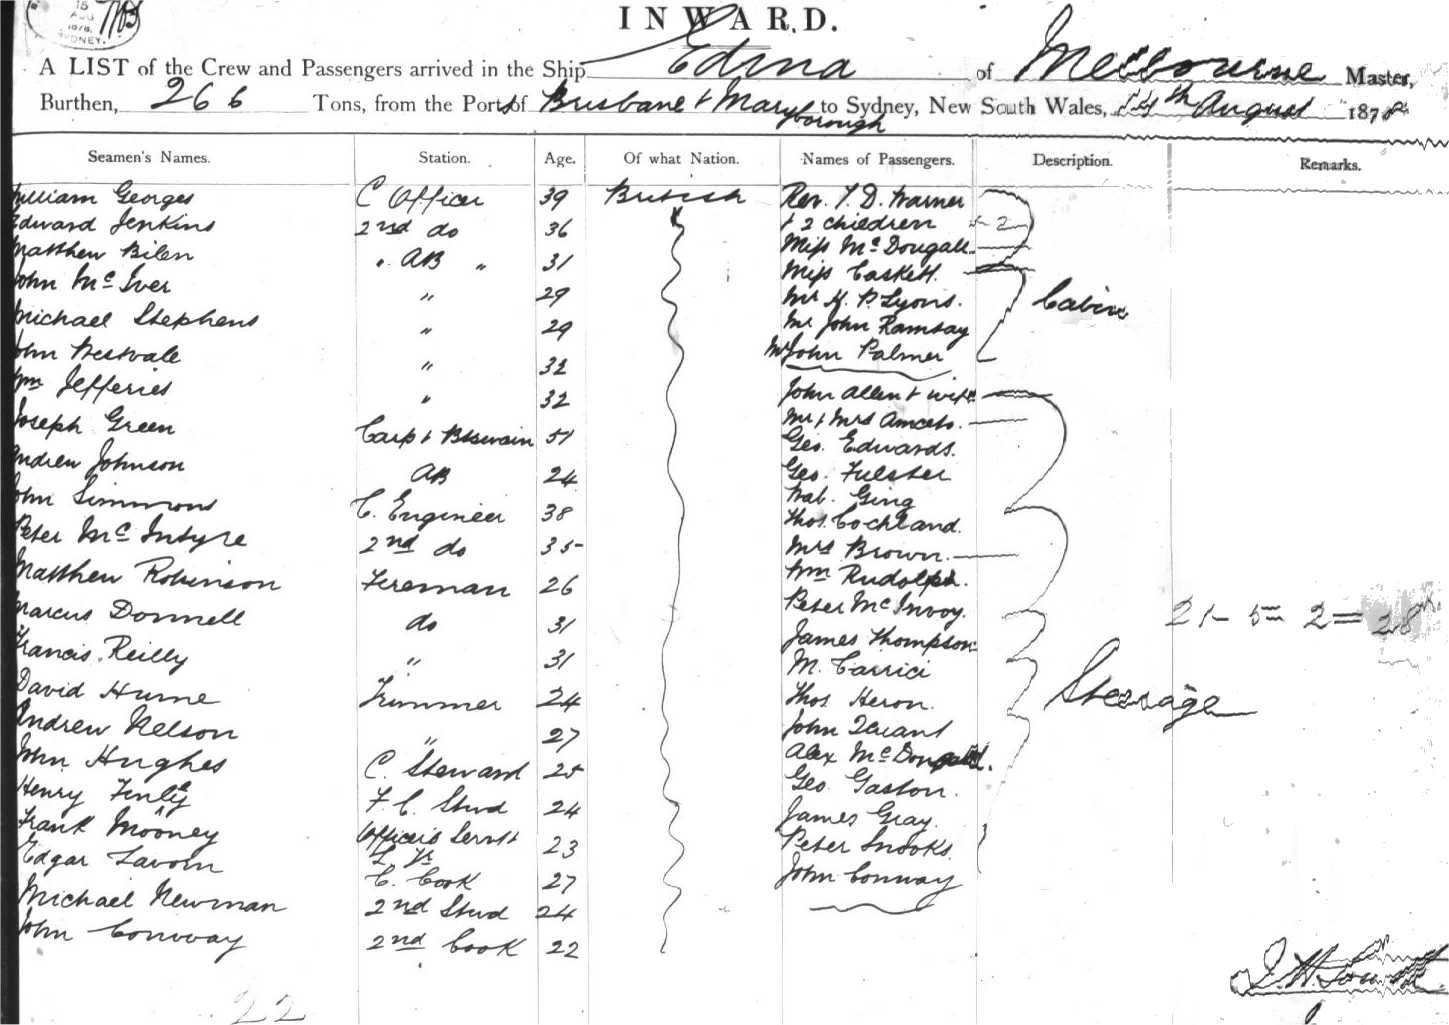 15
AUG
1878
SYDNEY.
INWARD.
A LIST of the Crew and Passengers arrived in the Ship Edina of Melbourne Master,
Burthen, 266 Tons, from the Ports of Brisbane & Maryborough to Sydney, New South Wales, 14th August 1878
Seamen's Names. Station. Age. Of what Nation. Names of Passengers. Description. Remarks.
William Georges C Officer 39 British Rev. T. D. Warner
Edward Jenkins 2nd do 36 & 2 children 2
Matthew Bilen " AB " 31 Miss McDougall
John McIver " 29 Miss Caskett.
Michael Stephens " 29 Mr H. P. Lyons. Cabin
John Prestvale " 32 Mr John Ramsay
Wm Jefferies " 32 Mr John Palmer
Joseph Green Carpt & Btswain 51 John Allen & wife
Andrew Johnson AB 24 Mr & Mrs
John Simmons C. Engineer 38 Geo. Edwards.
Peter McIntyre 2nd do 35 Geo.
Matthew Robinson Fireman 26 Ging
Marcus Donnell do 31 Thos. Cochland.
Francis Reilly " 31 Mrs Brown.
David Hume Trimmer 24 Wm Rudolph.
Andrew Nelson " 27 Peter McInvoy.
John Hughes C. Steward 25 James Thompson
Henry Finley F. C. Stwd 24 M. Carrici
Frank Mooney Officers Servt 23 Thos Heron.
Edgar Lavorn C. Cook 27 John
Michael Newman 2nd Stwd 24 Alex McDougald.
John Convoay 2nd Cook 22 Geo. Gaston.
James Gray.
Peter Snooks.
John Conway
21 - 5 = 2 = 28
Steerage
22